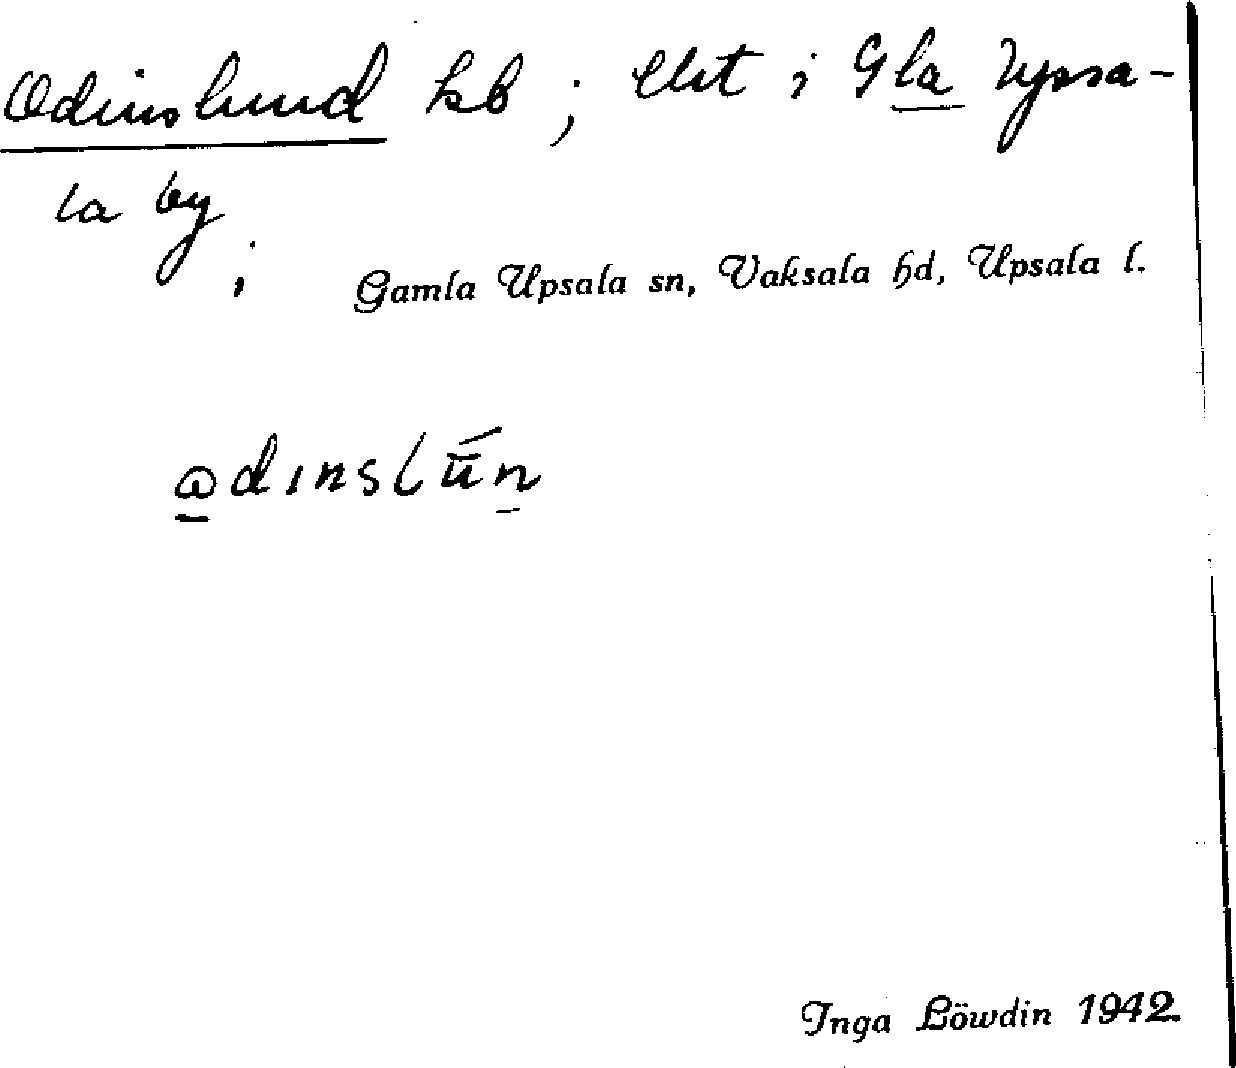 Odinslund kb; elut i Gla Upsa-
la by;
Gamla Upsala sn, Vaksala hd, Upsala l.
Inga Löwdin 1942